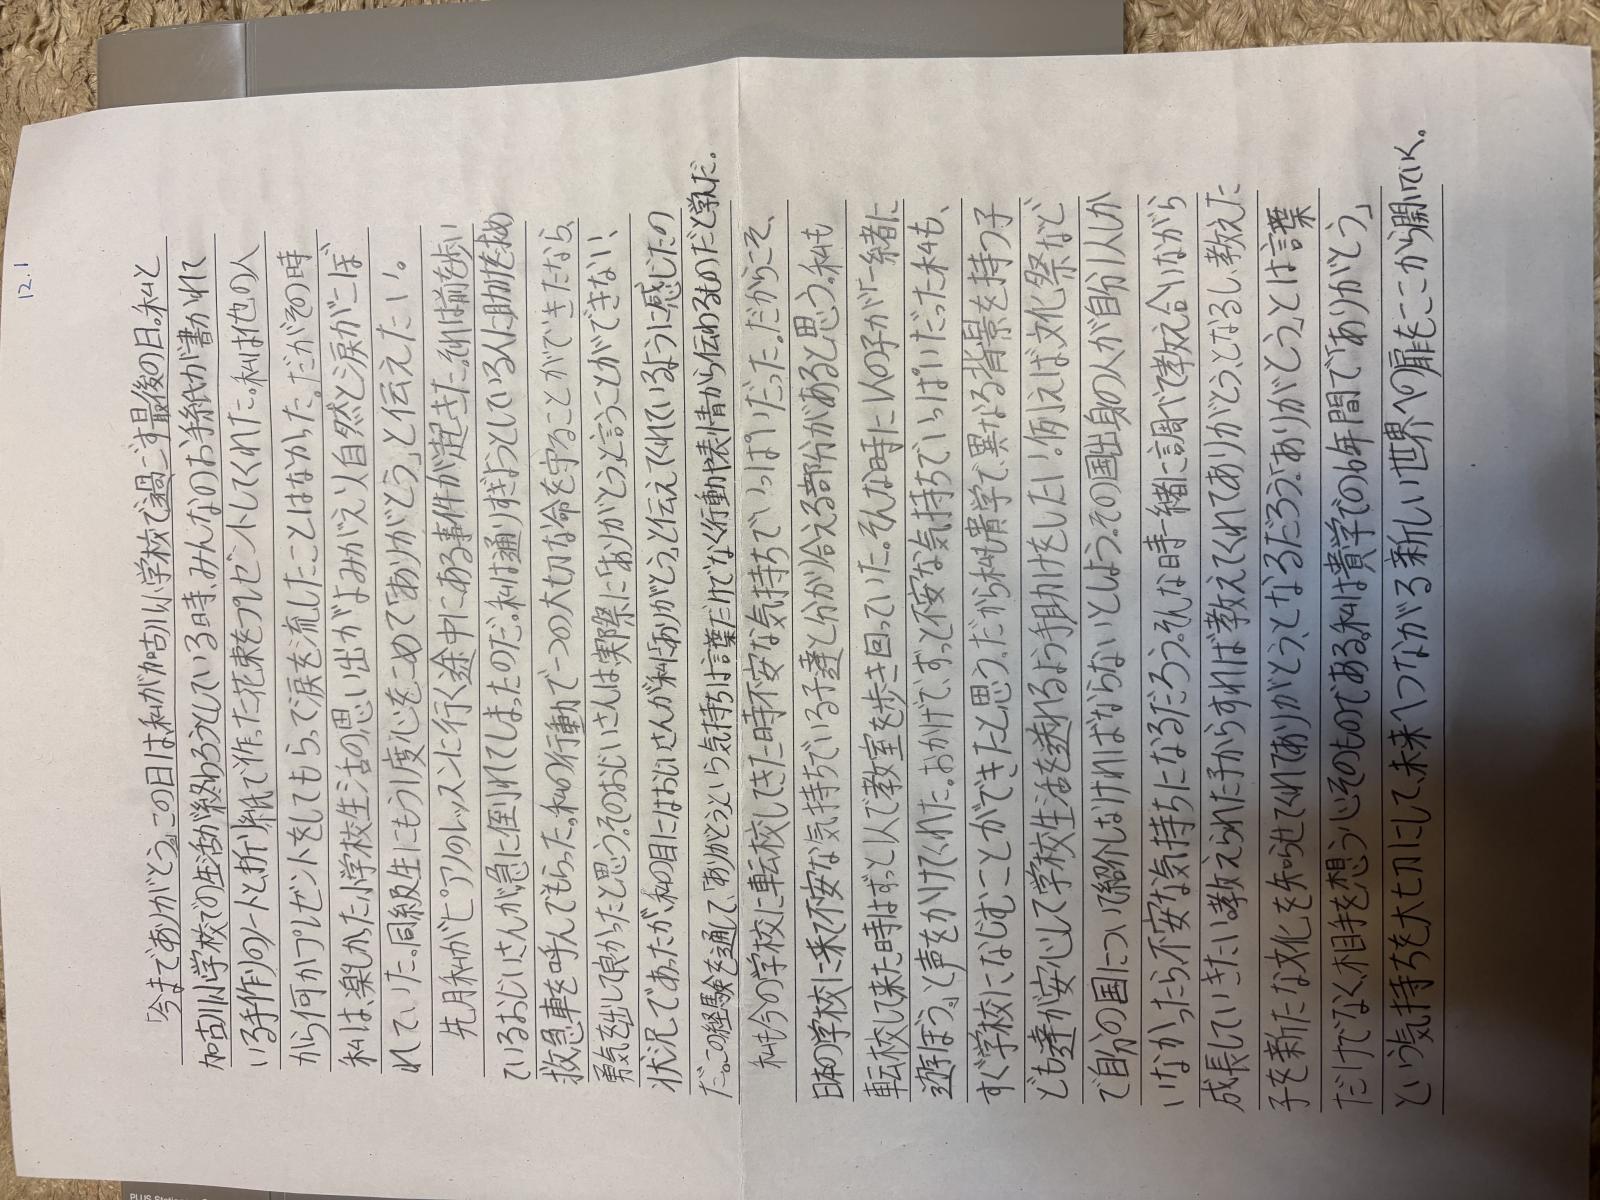 12.1
「今までありがとう。」この日は私が加古川小学校で過ごす最後の日。私と
加古川小学校での生活が終わろうとしている時、みんなのお手紙が書かれて
いる手作りのノートと折り紙で作った花束をプレゼントしてくれた。私は他の人
から何かプレゼントをしてもらって涙を流したことはなかった。だがその時
私は楽しかった小学校生活の思い出がよみがえり自然と涙がこぼ
れていた。同級生にもう1度心をこめて「ありがとう」と伝えたい。
先月私がピアノのレッスンに行く途中にある事件が起きた。それは前を歩い
ているおじいさんが急に倒れてしまったのだ。私は通りすぎようとしている人に助けを求め
救急車を呼んでもらった。私の行動で一つの大切な命を守ることができたなら、
勇気を出して良かったと思う。そのおじいさんは実際に「ありがとう」と言うことができない、
状況であったが、私の目にはおじいさんが私に「ありがとう」と伝えてくれているように感じたの
だ。この経験を通して、「ありがとう」という気持ちは言葉だけでなく行動や表情から伝わるものだと学んだ。
私も今の学校に転校してきた時不安な気持ちでいっぱいだった。だからこそ、
日本の学校に来て不安な気持ちでいる子達と分かり合える部分があると思う。私も
転校して来た時はずっと1人で教室を歩き回っていた。そんな時に1人の子が「一緒に
遊ぼう。」と声をかけてくれた。おかげで、ずっと不安な気持ちでいっぱいだった私も、
すぐ学校になじむことができたと思う。だから私も貴学で異なる背景を持つ子
ども達が安心して学校生活を送れるよう手助けをしたい。例えば文化祭など
で自分の国について紹介しなければならないとしよう。その国出身の人が自分1人しか
いなかったら不安な気持ちになるだろう。そんな時一緒に調べて教え合いながら
成長していきたい。教えられた子からすれば教えてくれてありがとう、となるし、教えた
子を新たな文化を知らせてくれてありがとう、となるだろう。「ありがとう」とは言葉
だけでなく、相手を想う心そのものである。私は貴学での6年間で「ありがとう」
という気持ちを大切にして、未来へつながる新しい世界への扉をここから開いていく。
PLUS